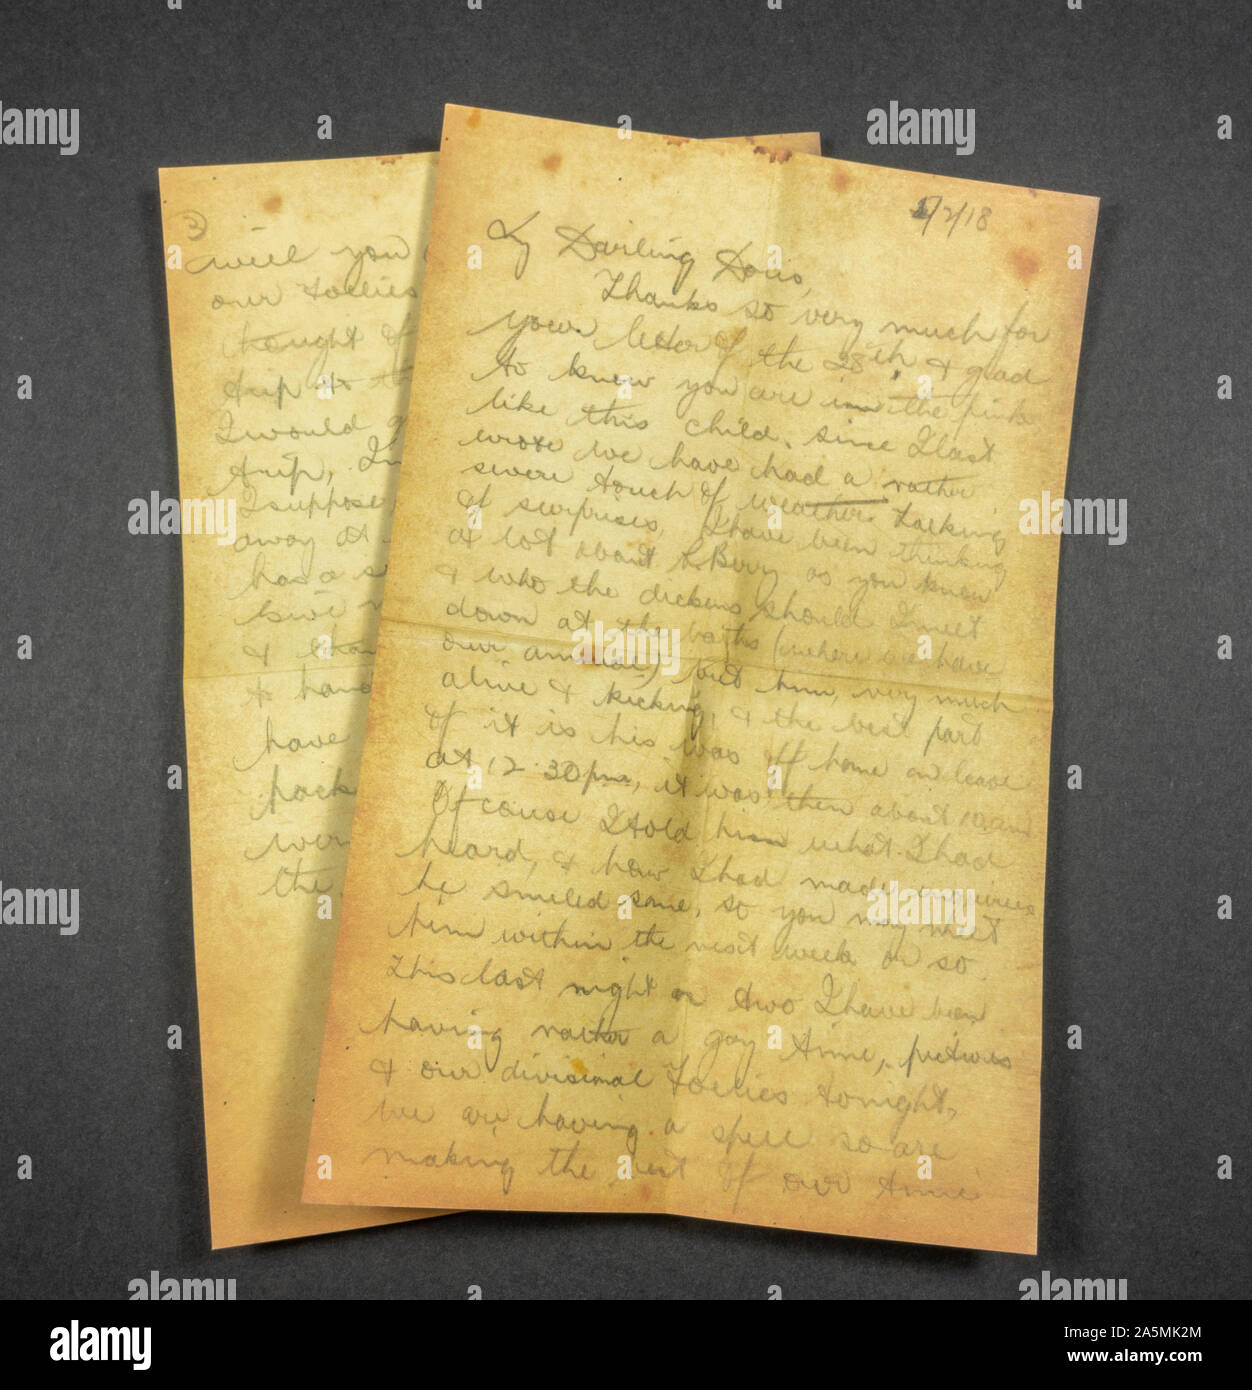 3
will you
our Toelies
thought of
trip & th
I would g
trip, I
I suppose
away at
has a s
give
&
to hand
have
pack
wer
the
2/2/18
My Darling Doris,
Thanks so very much for
your letter of the 28th & glad
to know you are in the pink
like this child. since I last
wrote we have had a rather
severe touch of weather. Talking
of surprises, I have been thinking
a lot about L. Berry as you know
& who the dickens should I meet
down at the baths (where we have
our ) but him, very much
alive & kicking, & the best part
of it is his was 4 home on leave
at 12.30pm, it was then about 10am
Of couse I told him what I had
heard, & how I had made enquiries
he smiled some, so you may meet
him within the next week or so.
This last night or two I have been
having rather a gay time, pictures
& our divisional Toelies tonight,
we are having a spell so are
making the best of our time
alamy
Image ID: 2A5MK2M
www.alamy.com